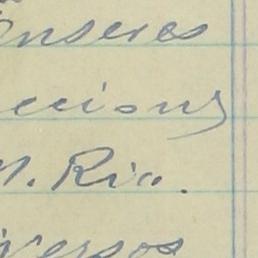 Enseres
cciones
M. Rio.
versos